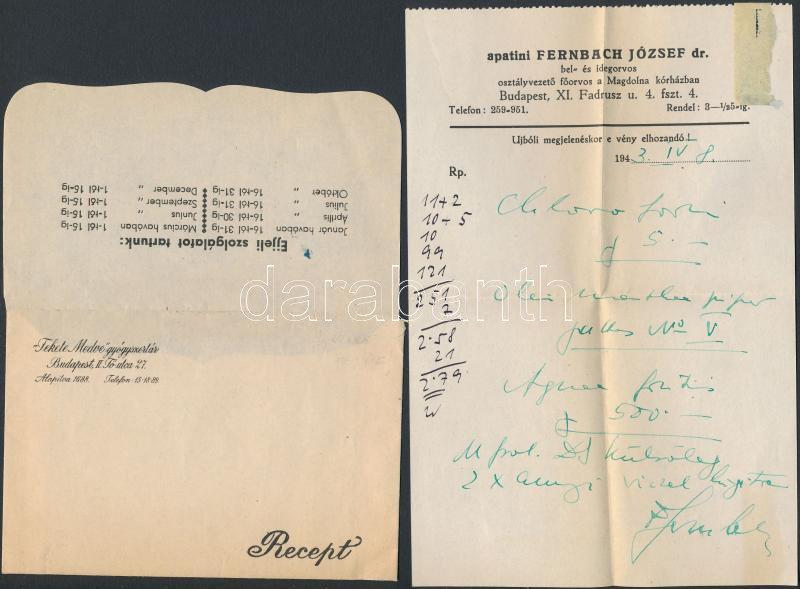 Éjjeli szolgálatot tartunk:
Január havában 16-tól 31-ig ◆ Március havában 1-től 15-ig
Április „ 16-tól 30-ig ◆ Junius „ 1-től 15-ig
Julius „ 16-tól 31-ig ◆ Szeptember „ 1-től 15-ig
Október „ 16-tól 31-ig ◆ December „ 1-től 15-ig
„Fekete Medve” gyógyszertár
Budapest, II. Fő-utca 27.
Alapítva 1688. Telefon 15-18-89
Recept
apatini FERNBACH JÓZSEF dr.
bel- és idegorvos
osztályvezető főorvos a Magdolna kórházban
Budapest, XI. Fadrusz u. 4. fszt. 4.
Telefon: 259-951. Rendel: 3—½5-ig.
Ujbóli megjelenéskor e vény elhozandó!
1943. IV 8.
Rp.
11+2
10+5
10
99
121
2.51
7
2.58
21
2.79
5.—
Olei menthae piper
guttas No V
500.—
M. D.S. külsőleg
2 x annyi vizzel higitva
darabanth